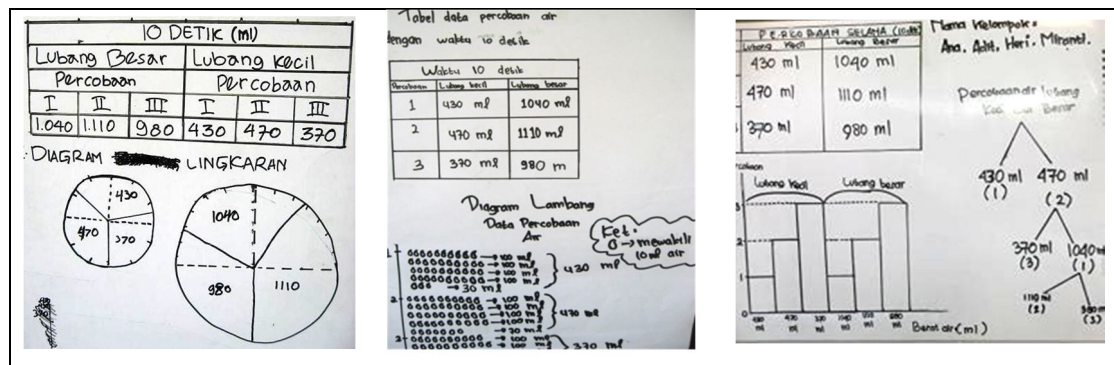 10 DETIK (ml)
Lubang Besar Lubang Kecil
Percobaan Percobaan
I II III I II III
1.040 1.110 980 430 470 370
DIAGRAM LINGKARAN
430
470 370
1040
980 1110
Tabel data percobaan air
dengan waktu 10 detik
Waktu 10 detik
Percobaan Lubang kecil Lubang besar
1 430 ml 1040 ml
2 470 ml 1110 ml
3 370 ml 980 m
Diagram Lambang
Data Percobaan
Air
Ket:
0 → mewakili
10 ml air
1 → 100 ml
→ 100 ml
→ 100 ml
→ 100 ml
→ 30 ml
430 ml
2 → 100 ml
→ 100 ml
→ 100 ml
→ 100 ml
→ 70 ml
470 ml
→ 100 ml
→ 100 ml
370 ml
PERCOBAAN SELAMA (10 dtk)
Lubang Kecil Lubang Besar
430 ml 1040 ml
470 ml 1110 ml
370 ml 980 ml
Nama Kelompok:
Ana, Adit, Heri, Miranti.
Percobaan air lubang
Kecil dan Besar
430 ml 470 ml
(1) (2)
370 ml 1040 m
(3) (1)
1110 ml
(2) (3)
Lubang Kecil Lubang besar
3
2
1
0
430 ml 470 ml 370 ml 1040 ml 1110 ml 980 ml
Berat air (ml)